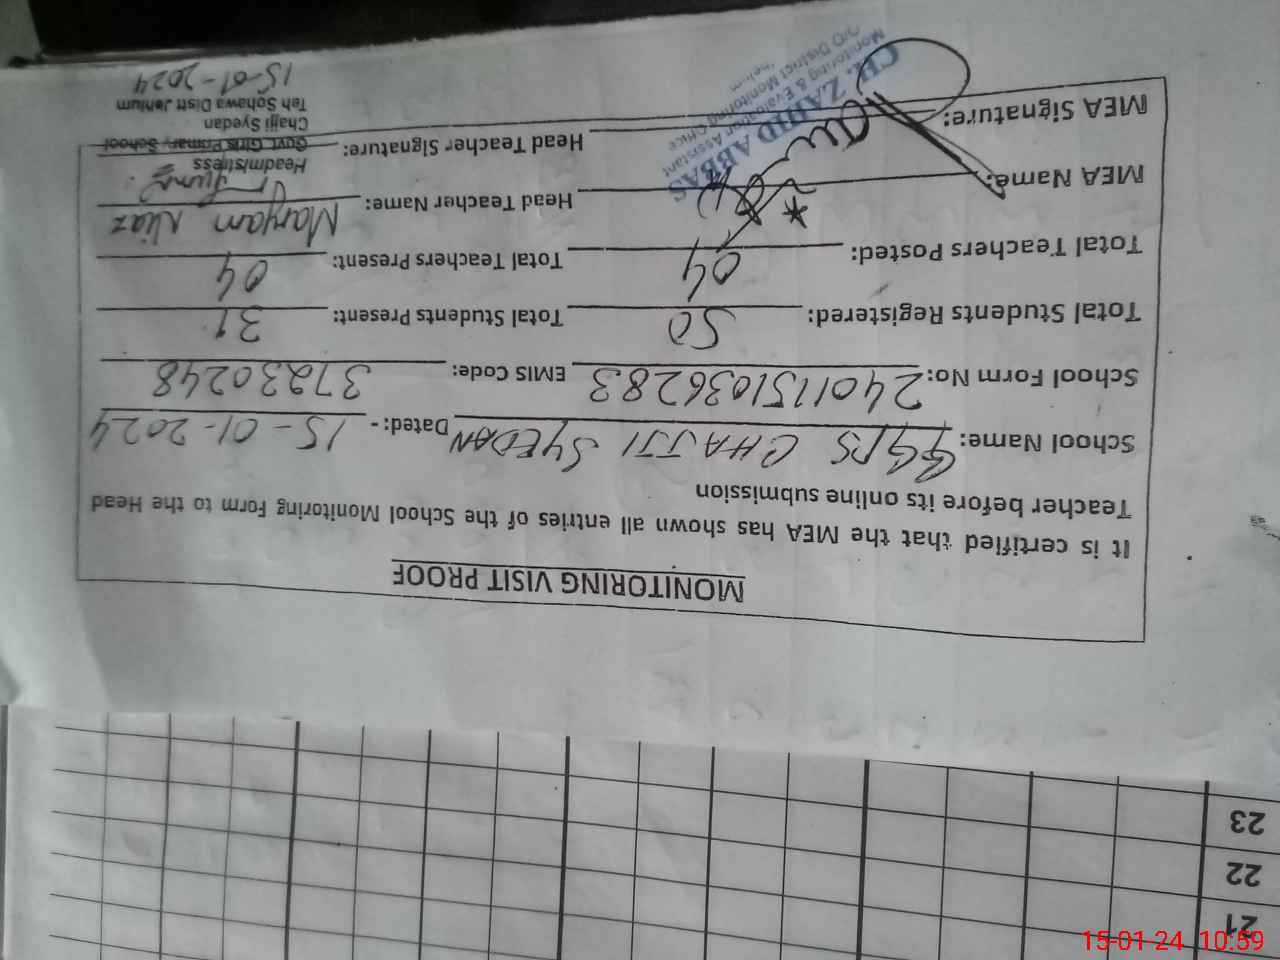 MONITORING VISIT PROOF
It is certified that the MEA has shown all entries of the School Monitoring Form to the Head
Teacher before its online submission
School Name: GGPS CHAJJI SYEDAN Dated:- 15-01-2024
School Form No: 2401151036283 EMIS Code: 37230248
Total Students Registered: 50 Total Students Present: 31
Total Teachers Posted: 04 Total Teachers Present: 04
MEA Name: Head Teacher Name: Maryam Niaz
MEA Signature: Head Teacher Signature:
CH. ZAHID ABBAS
Monitoring & Evaluation Assistant
O/O District Monitoring Office
Jhelum
Headmistress
Govt. Girls Primary School
Chajji Syedan
Teh Sohawa Distt Jehlum
15-01-2024
21
22
23
15-01-24 10:59